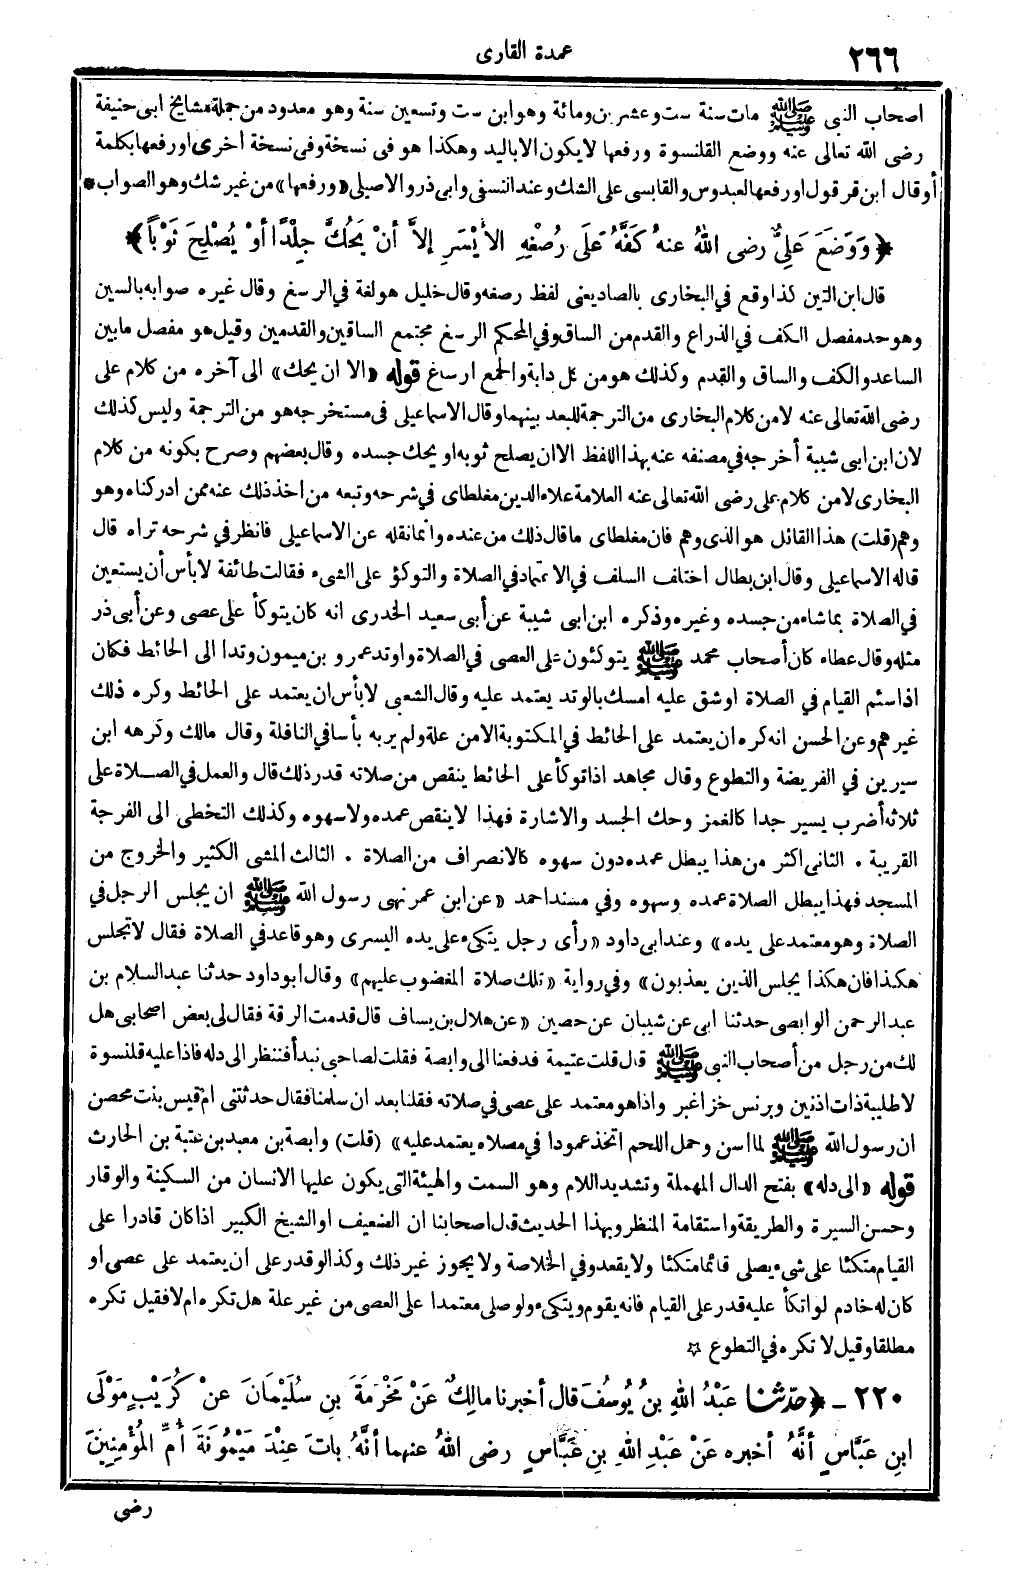 ٢٦٦
عمدة القارى
اصحاب النبي ﷺ مات سنة ست وعشرين ومائة وهو ابن ست وتسعين سنة وهو معدود من جملة مشايخ ابى حنيفة
رضى الله تعالى عنه ووضع القلنسوة ورفعها لا يكون الا باليد وهكذا هو فى نسخة وفى نسخة أخرى او رفعها بكلمة
أو قال ابن قرقول او رفعها لعبدوس والقابسى على الشك وعند النسفى وابى ذر والاصيلى «ورفعها» من غير شك وهو الصواب *
﴿ وَوَضَعَ عَلِيٌّ رضى اللهُ عنهُ كَفَّهُ عَلَى رُصْغِهِ الأَيْسَرِ إلاَّ أنْ يَحُكَّ جِلْدًا أوْ يُصْلِحَ ثَوْباً ﴾
قال ابن التين كذا وقع في البخارى بالصاد يعنى لفظ رصغه وقال خليل هو لغة في الرسغ وقال غيره صوابه بالسين
وهو حد مفصل الكف في الذراع والقدم من الساق وفي المحكم الرسغ مجتمع الساقين والقدمين وقيل هو مفصل ما بين
الساعد والكف والساق والقدم وكذلك هو من كل دابة والجمع ارساغ قوله «الا ان يحك» الى آخره من كلام على
رضى الله تعالى عنه لا من كلام البخارى من الترجمة للبعد بينهما وقال الاسماعيلى فى مستخرجه هو من الترجمة وليس كذلك
لان ابن ابى شيبة أخرجه في مصنفه عنه بهذا اللفظ الا ان يصلح ثوبه او يحك جسده وقال بعضهم وصرح بكونه من كلام
البخارى لا من كلام على رضى الله تعالى عنه العلامة علاء الدين مغلطاى في شرحه وتبعه من اخذ ذلك عنه ممن ادركناه وهو
وهم (قلت) هذا القائل هو الذى وهم فان مغلطاى ما قال ذلك من عنده وانما نقله عن الاسماعيلى فانظر في شرحه تراه قال
قاله الاسماعيلى وقال ابن بطال اختلف السلف في الاعتماد في الصلاة والتوكؤ على الشىء فقالت طائفة لا بأس أن يستعين
في الصلاة بما شاء من جسده وغيره وذكره ابن ابى شيبة عن أبى سعيد الخدرى انه كان يتوكأ على عصى وعن أبى ذر
مثله وقال عطاء كان أصحاب محمد ﷺ يتوكئون على العصى في الصلاة واوتد عمرو بن ميمون وتدا الى الحائط فكان
اذا سئم القيام في الصلاة او شق عليه امسك بالوتد يعتمد عليه وقال الشعبى لا بأس ان يعتمد على الحائط وكره ذلك
غيرهم وعن الحسن انه كره ان يعتمد على الحائط في المكتوبة الا من علة ولم ير به بأسا في النافلة وقال مالك وكرهه ابن
سيرين في الفريضة والتطوع وقال مجاهد اذا توكأ على الحائط ينقص من صلاته قدر ذلك قال والعمل في الصلاة على
ثلاثة أضرب يسير جدا كالغمز وحك الجسد والاشارة فهذا لا ينقص عمده ولا سهوه وكذلك التخطى الى الفرجة
القريبة . الثانى اكثر من هذا يبطل عمده دون سهوه كالانصراف من الصلاة . الثالث المشى الكثير والخروج من
المسجد فهذا يبطل الصلاة عمده وسهوه وفي مسند احمد «عن ابن عمر نهى رسول الله ﷺ ان يجلس الرجل في
الصلاة وهو معتمد على يده» وعند ابى داود «رأى رجل يتكىء على يده اليسرى وهو قاعد في الصلاة فقال لا تجلس
هكذا فان هكذا يجلس الذين يعذبون» وفي رواية «تلك صلاة المغضوب عليهم» وقال ابو داود حدثنا عبد السلام بن
عبد الرحمن الوابصى حدثنا ابى عن شيبان عن حصين «عن هلال بن يساف قال قدمت الرقة فقال لى بعض اصحابى هل
لك من رجل من أصحاب النبي ﷺ قال قلت غنيمة فدفعنا الى وابصة فقلت لصاحبي نبدأ فننظر الى دله فاذا عليه قلنسوة
لاطية ذات اذنين وبرنس خز اغبر واذا هو معتمد على عصى في صلاته فقلنا بعد ان سلمنا فقال حدثتنى ام قيس بنت محصن
ان رسول الله ﷺ لما اسن وحمل اللحم اتخذ عمودا في مصلاه يعتمد عليه» (قلت) وابصة بن معبد بن عتبة بن الحارث
قوله «الى دله» بفتح الدال المهملة وتشديد اللام وهو السمت والهيئة التى يكون عليها الانسان من السكينة والوقار
وحسن السيرة والطريقة واستقامة المنظر وبهذا الحديث قال اصحابنا ان الضعيف او الشيخ الكبير اذا كان قادرا على
القيام متكئا على شىء يصلى قائما متكئا ولا يقعد وفي الخلاصة ولا يجوز غير ذلك وكذا لو قدر على ان يعتمد على عصى او
كان له خادم لو اتكأ عليه قدر على القيام فانه يقوم ويتكىء ولو صلى معتمدا على العصى من غير علة هل تكره ام لا فقيل تكره
مطلقا وقيل لا تكره في التطوع ☆
٢٢٠ ـ ﴿ حدّثنا عَبْدُ اللهِ بنُ يُوسُفَ قال أخبرنا مالِكٌ عَنْ مَخْرَمَةَ بنِ سُلَيْمَانَ عنْ كُرَيْبٍ مَوْلَى
ابنِ عَبَّاسٍ أنَّهُ أخبره عَنْ عَبْدِ اللهِ بنِ عَبَّاسٍ رضى اللهُ عنهما أنَّهُ باتَ عِنْدَ مَيْمُونَةَ أُمِّ المُؤْمِنِينَ
رضى